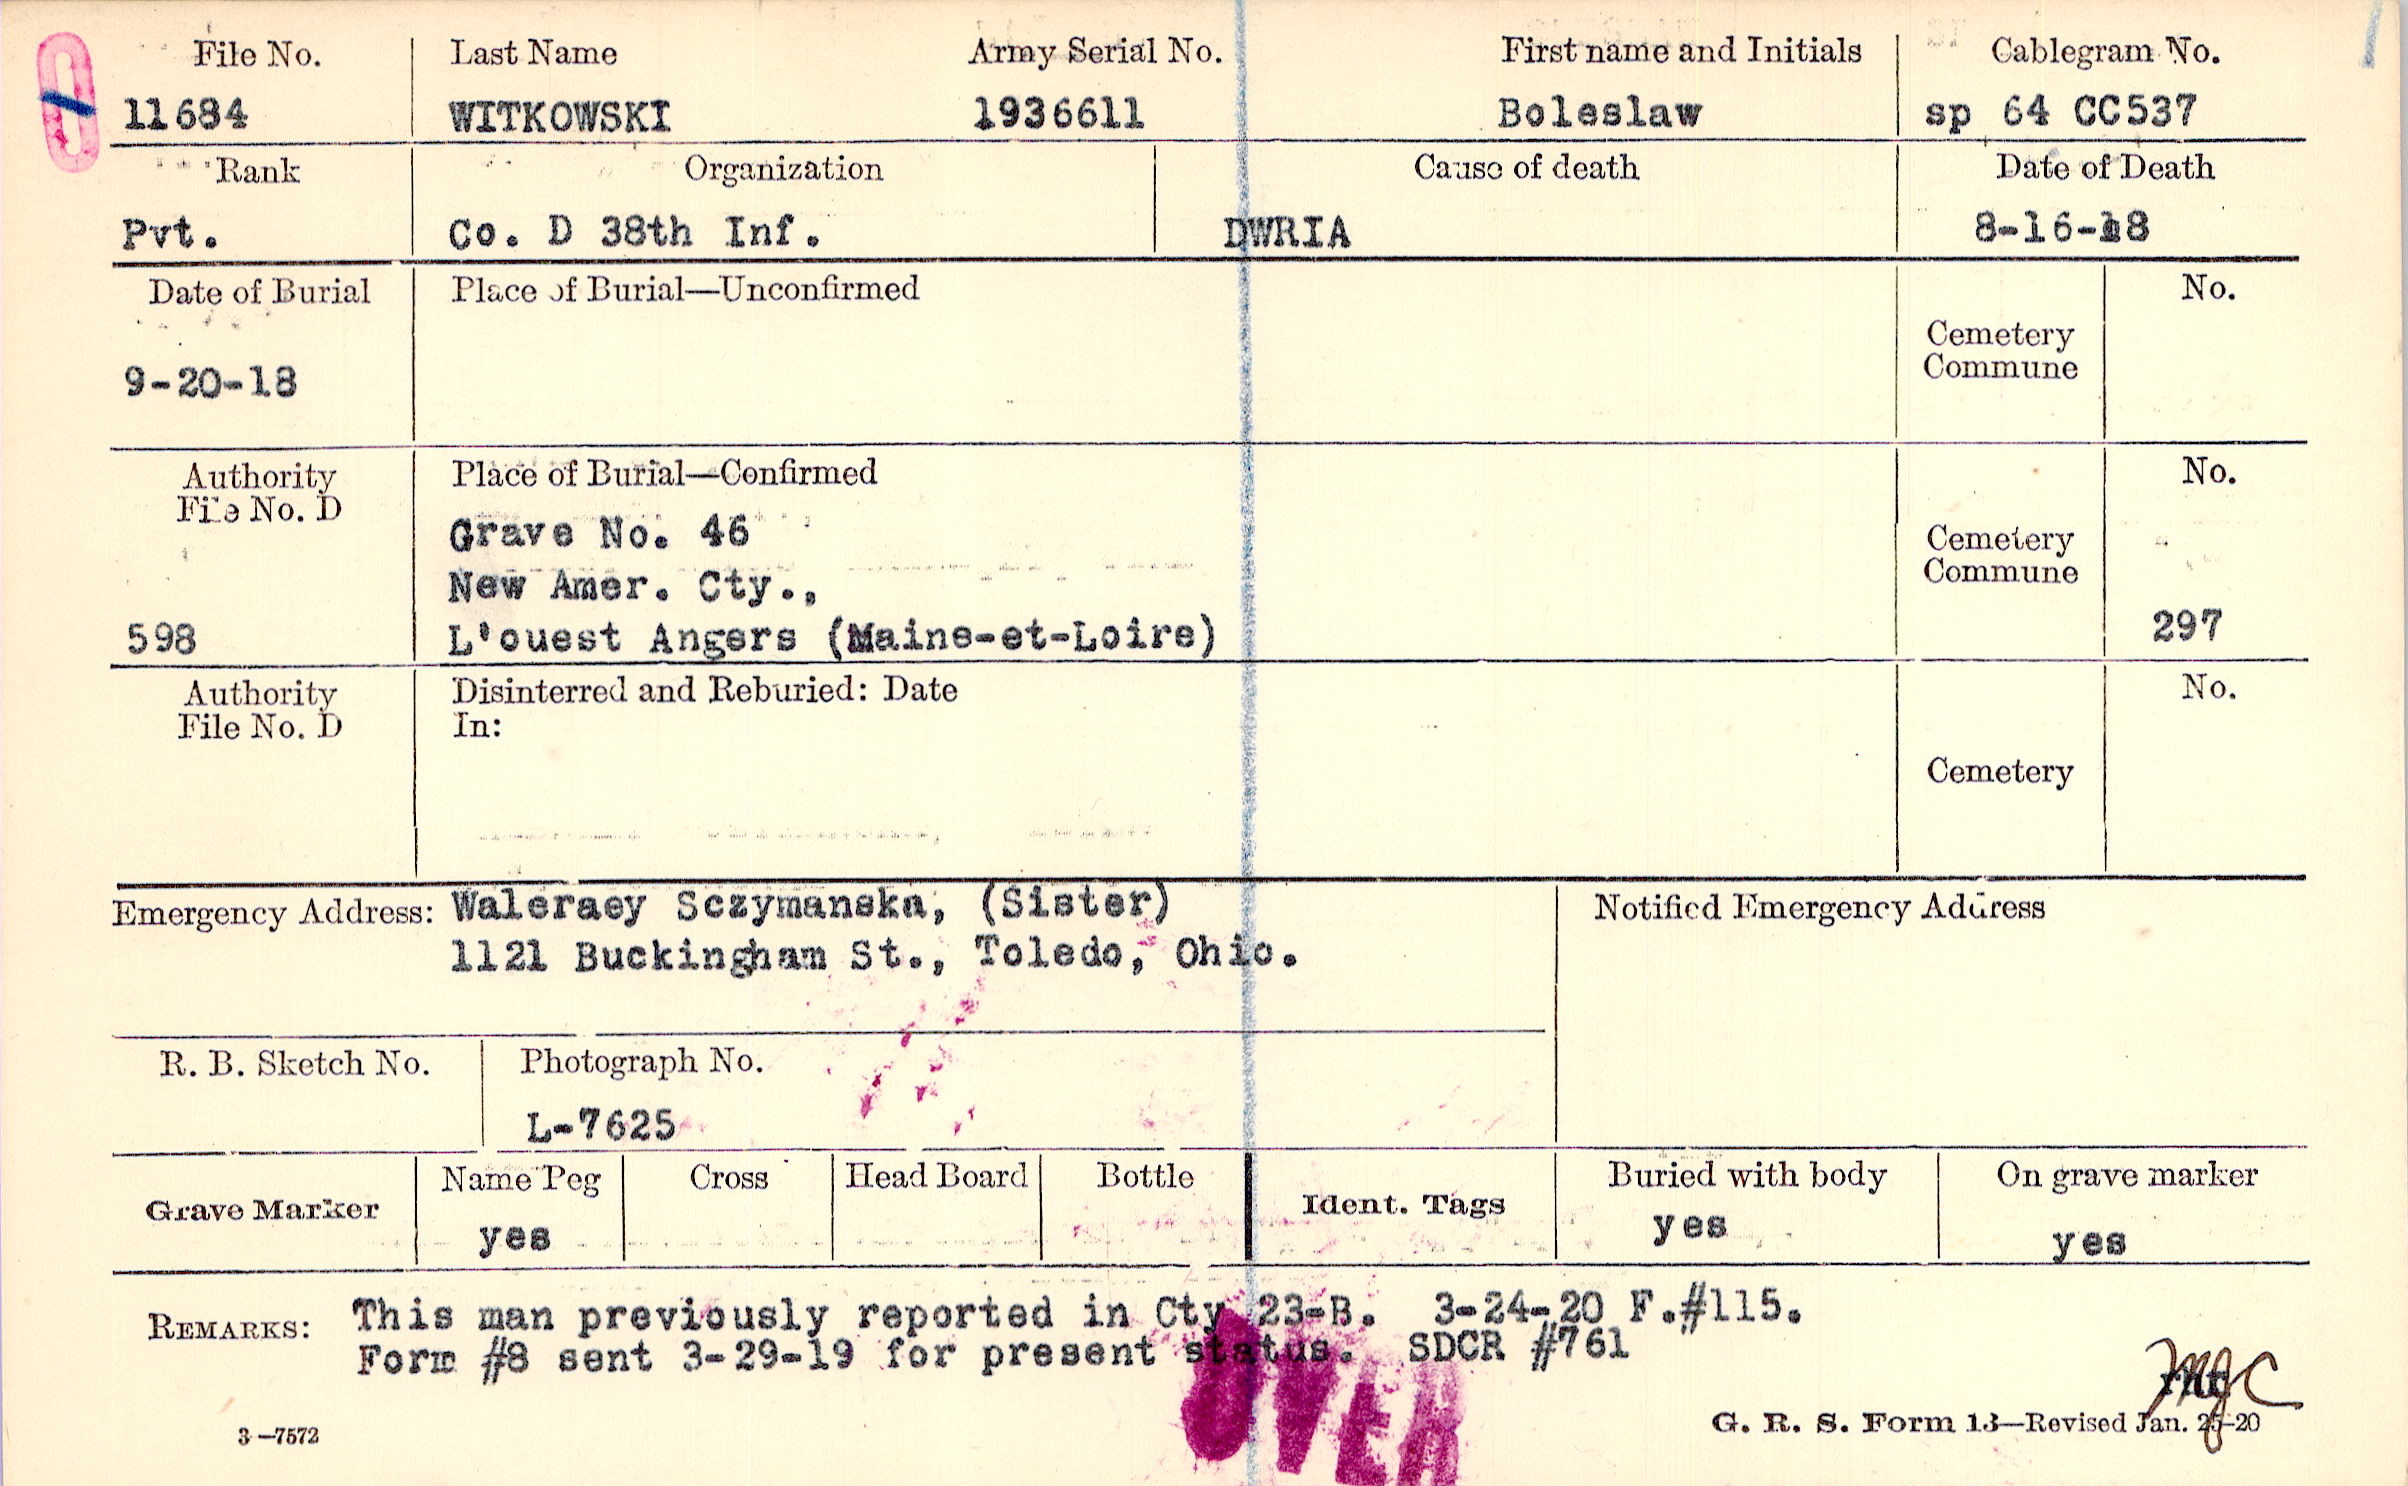 File No. Last Name Army Serial No. First name and Initials Cablegram No.
11684 WITKOWSKI 1936611 Boleslaw sp 64 CC537
Rank Organization Cause of death Date of Death
Pvt. Co. D 38th Inf. DWRIA 8-16-18
Date of Burial Place of Burial—Unconfirmed No.
Cemetery
Commune
9-20-18
Authority Place of Burial—Confirmed No.
File No. D
Grave No. 46
Cemetery
New Amer. Cty., Commune
598 L'ouest Angers (Maine-et-Loire) 297
Authority Disinterred and Reburied: Date No.
File No. D In:
Cemetery
Emergency Address: Waleraey Sczymanska, (Sister) Notified Emergency Address
1121 Buckingham St., Toledo, Ohio.
R. B. Sketch No. Photograph No.
L-7625
Grave Marker Name Peg Cross Head Board Bottle Ident. Tags Buried with body On grave marker
yes yes yes
REMARKS: This man previously reported in Cty 23-B. 3-24-20 F.#115.
Form #8 sent 3-29-19 for present status. SDCR #761
OVER
3—7572 G. R. S. Form 13—Revised Jan. 25-20